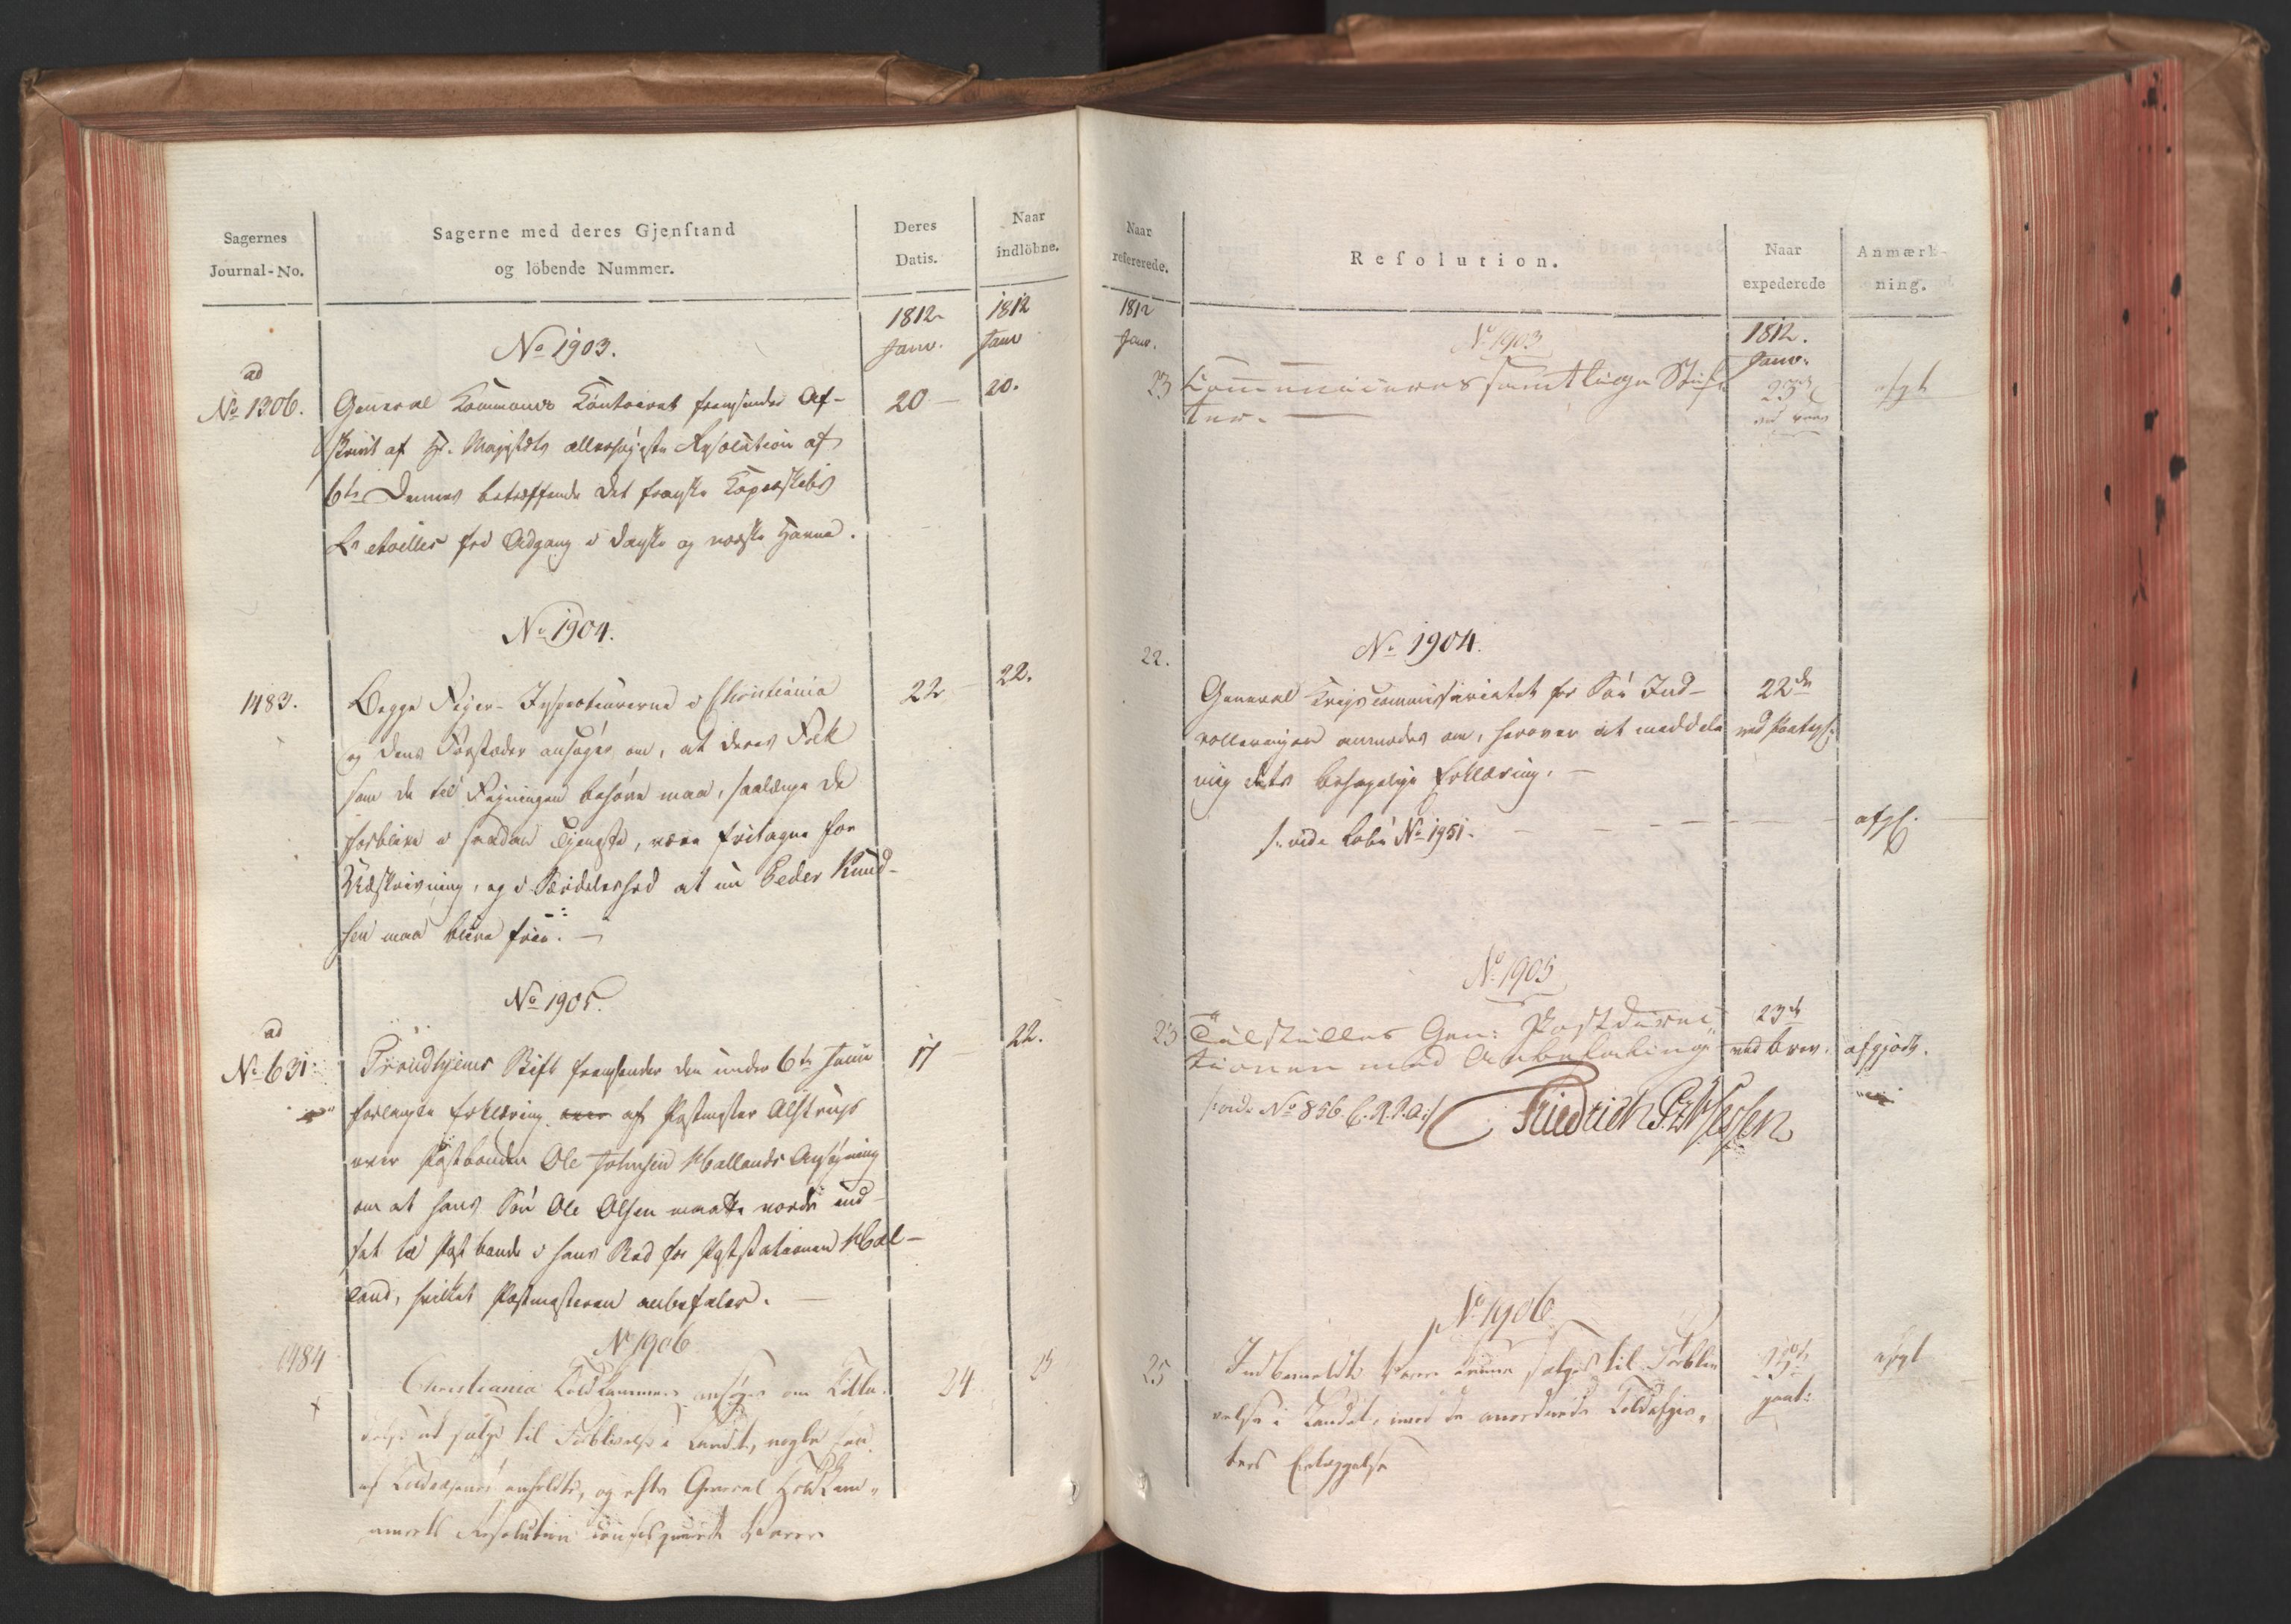 Sagernes
Journal-No.
Sagerne med deres Gjenstand
og löbende Nummer.
Deres
Datis.
Naar
indlöbne.
1812
Janv.
1812
Janv
No 1903.
ad
No 1306.
General Kommando Contoiret fremsender Af-
skrivt af Hs. Majestets allerhøjeste Resolution af
6te Dennes betreffende det franske Caperskibs
L'etoilles frie Adgang i danske og norske Havne.
20
20.
No 1904.
1483.
Begge Fejer-Inspecteurerne i Christiania
og dens Forstæder ansøger om, at deres Folk
som de til Fejningen behøve maa, saalænge de
forblive i saadan Tjeneste, være fritagne for
Udskrivning, og i Særdeleshed at nu Peder Knud-
sen maa blive frie. —
22
22.
No 1905.
ad
No 631.
Trondhjems Stift fremsender den under 6te Junii
forlangte Erklæring af Postmester Alstrup
over Postbonden Ole Johnsen Halland's Ansøgning
om at hans Søn Ole Olsen maatte vorde ind-
sat til Postbonde i hans Sted for Poststationen Hal-
land, hvilket Postmesteren anbefaler. —
17
22.
No 1906
1484
Christiania Toldkammer ansøger om Tilla-
delse at sælge til Forblivelse i Landet, nogle
af Toldvæsenet anholdte, og efter General Toldkam-
merets Resolution confisquerede Varer
24
25
Naar
refererede.
Resolution.
Naar
expederede
Anmærk-
ning.
1812
Janv.
1812.
Janv.
No 1903
23
Communiceres samtlige Stif-
ter. —
23de
afgt
No 1904.
22.
General Krigscommissariatet for Søe Ind-
rolleringen anmodes om, herover at meddele
mig dets behagelige Erklæring. —
s. vide Løbe No 1951.
22de
ved Paategn:
afgt.
No 1905
23
Tilstilles Gen: Postdirec
tionen med Anbefaling
vide No 856.
Friedrich Pz Hessen
23de
ved brev.
afgjort.
No 1906
25
Indbemeldte Varer kunne sælges til Forbli-
velse i Landet, imod de anordnede Toldafgiv-
ters Erlæggelse
25de
paat:
afgt